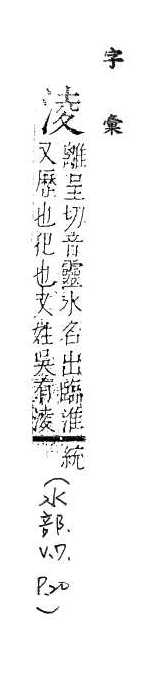 字彙
淩
離呈切音靈水名出臨淮
又歷也犯也又姓吳有淩
統
(水部.
V.7.
P.20)